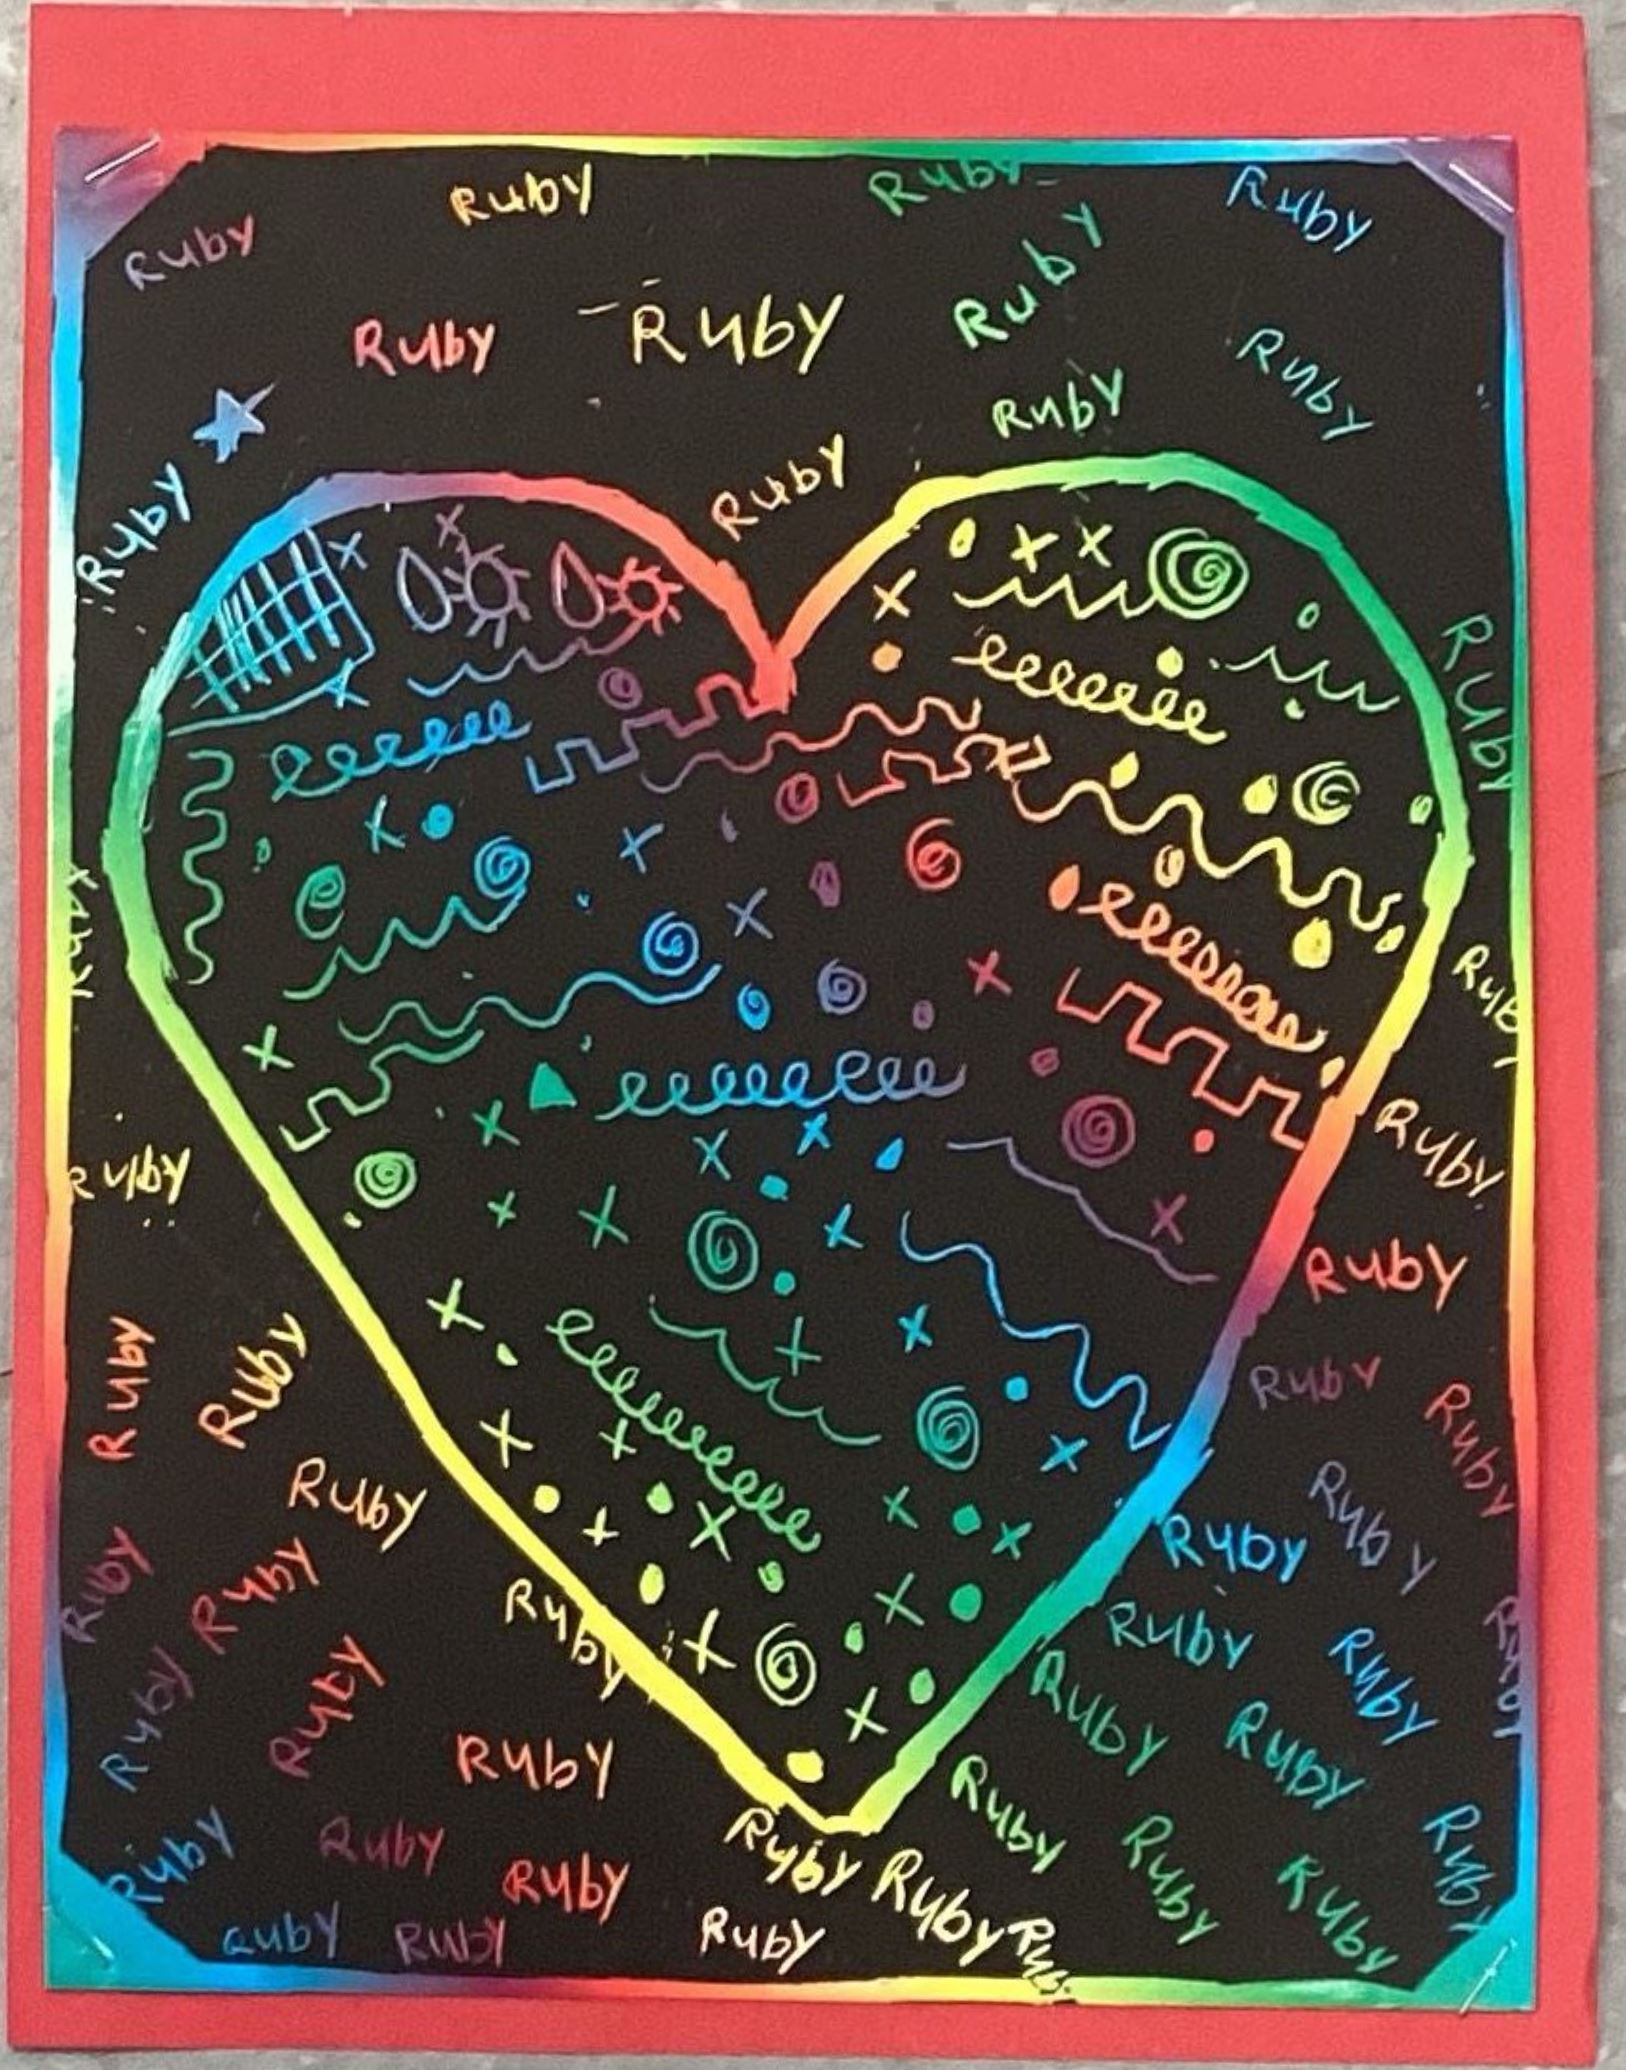 Ruby
Ruby
Ruby
Ruby
Ruby
Ruby
Ruby
Ruby
Ruby
Ruby
Ruby
Ruby
Ruby
Ruby
Ruby
Ruby
Ruby
Ruby
Ruby
Ruby
Ruby
Ruby
Ruby
Ruby
Ruby
Ruby
Ruby
Ruby
Ruby
Ruby
Ruby
Ruby
Ruby
Ruby
Ruby
Ruby
Ruby
Ruby
Ruby
Ruby
Ruby
Ruby
Ruby
Ruby
Ruby
Ruby
Rub